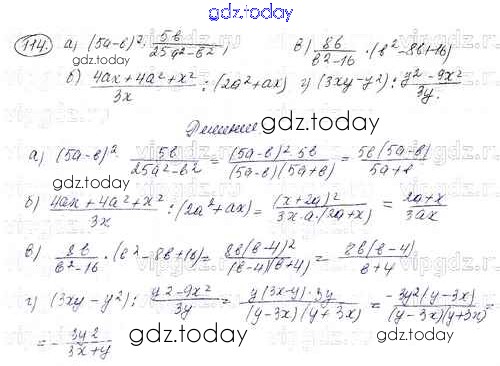 gdz.today
114. а) (5a-b)²· 5b/(25a²-b²); в) 8b/(b²-16) ·(b²-8b+16)
б) (4ax+4a²+x²)/3x : (2a²+ax) г) (3xy-y²) : (y²-9x²)/3y.
gdz.today
Решение
gdz.today
а) (5a-b)² · 5b/(25a²-b²) = (5a-b)² 5b/(5a-b)(5a+b) = 5b(5a-b)/(5a+b)
б) (4ax+4a²+x²)/3x : (2a²+ax) = (x+2a)²/(3x·a·(2a+x)) = (2a+x)/3ax
в) 8b/(b²-16) ·(b²-8b+16) = 8b(b-4)²/(b-4)(b+4) = 8b(b-4)/(b+4)
г) (3xy-y²) : (y²-9x²)/3y = y(3x-y)·3y/(y-3x)(y+3x) = -3y²(y-3x)/(y-3x)(y+3x) =
= - 3y²/(3x+y)
gdz.today
gdz.today